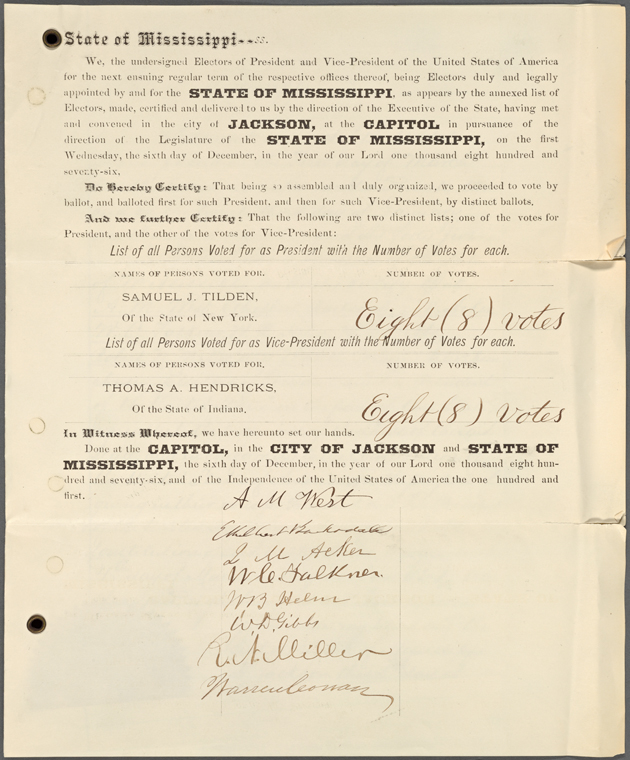 State of Mississippi--ss.
We, the undersigned Electors of President and Vice-President of the United States of America
for the next ensuing regular term of the respective offices thereof, being Electors duly and legally
appointed by and for the STATE OF MISSISSIPPI, as appears by the annexed list of
Electors, made, certified and delivered to us by the direction of the Executive of the State, having met
and convened in the city of JACKSON, at the CAPITOL in pursuance of the
direction of the Legislature of the STATE OF MISSISSIPPI, on the first
Wednesday, the sixth day of December, in the year of our Lord one thousand eight hundred and
seventy-six,
Do Hereby Certify: That being so assembled and duly organized, we proceeded to vote by
ballot, and balloted first for such President, and then for such Vice-President, by distinct ballots.
And we further Certify: That the following are two distinct lists; one of the votes for
President, and the other of the votes for Vice-President:
List of all Persons Voted for as President with the Number of Votes for each.
NAMES OF PERSONS VOTED FOR. NUMBER OF VOTES.
SAMUEL J. TILDEN,
Of the State of New York. Eight (8) votes
List of all Persons Voted for as Vice-President with the Number of Votes for each.
NAMES OF PERSONS VOTED FOR. NUMBER OF VOTES.
THOMAS A. HENDRICKS,
Of the State of Indiana. Eight (8) votes
In Witness Whereof, we have hereunto set our hands.
Done at the CAPITOL, in the CITY OF JACKSON and STATE OF
MISSISSIPPI, the sixth day of December, in the year of our Lord one thousand eight hun-
dred and seventy-six, and of the Independence of the United States of America the one hundred and
first.
A M West
Ethelbert Barksdale
M Acker
W.C. Falkner.
WB Helm
W.D. Gibbs
Miller
Warren Cowan